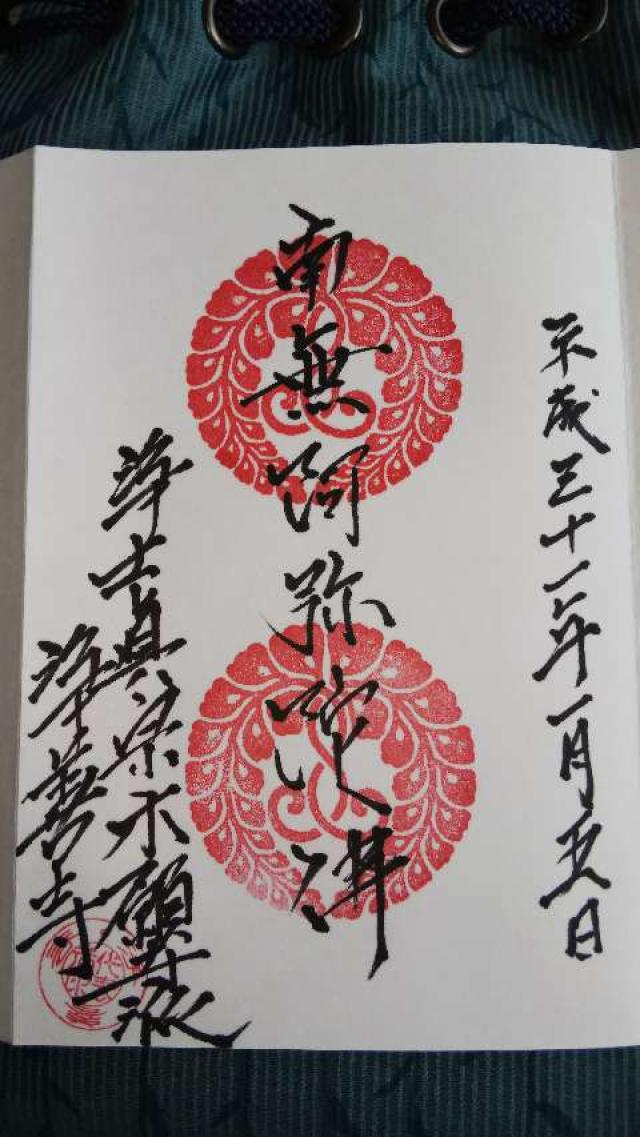 平成三十一年一月五日
南無阿弥陀佛
浄土真宗本願寺派
浄善寺